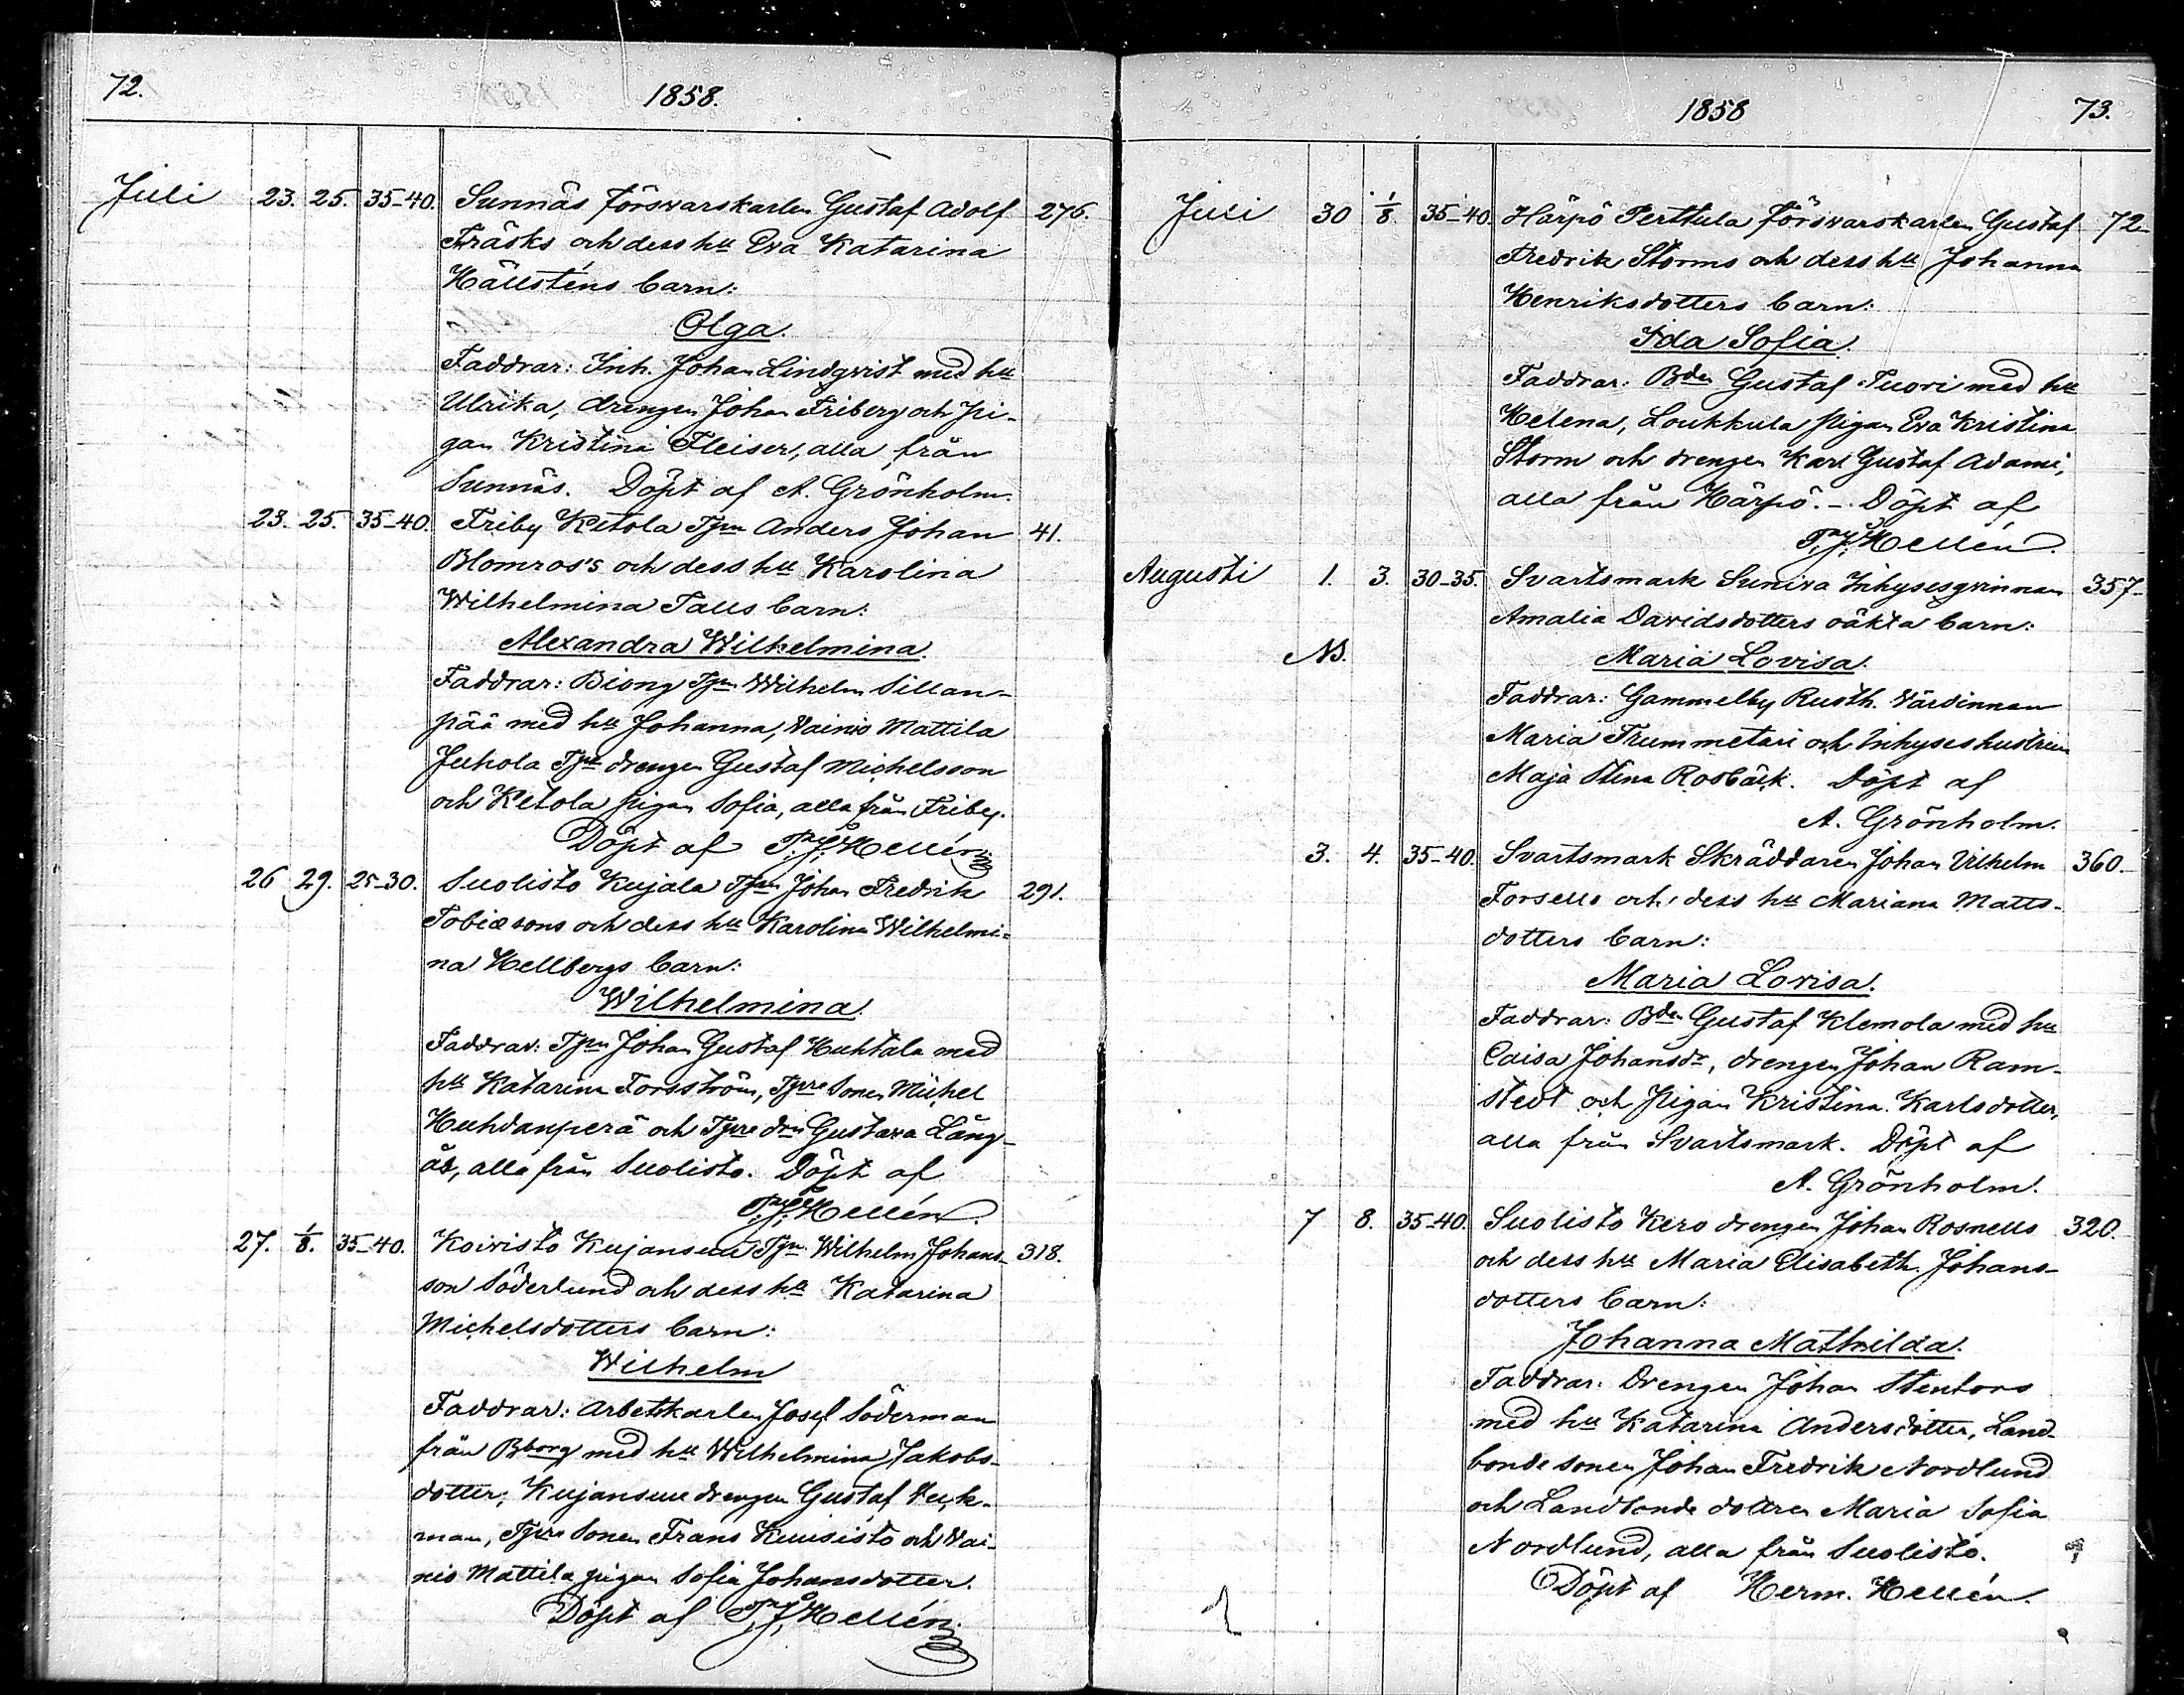 72.
1858.
Juli 23. 25. 35-40. Sunnäs försvarskarlen Gustaf Adolf 276.
Träsks och dess hu Eva Katarina
Hällsténs barn:
Olga.
Faddrar: Inh. Johan Lindqvist med hu
Ulrika, drengen Johan Friberg och pi-
gan Kristina Fleiser, alla från
Sunnäs. Döpt af A. Grönholm.
23. 25. 35-40. Friby Ketola Tpn Anders Johan 41.
Blomros's och dess hu Karolina
Wilhelmina Talls barn:
Alexandra Wilhelmina.
Faddrar: Biong Tpn Wilhelm Sillan-
pää med hu Johanna, Vainio Mattila
Juhola Tpre drengen Gustaf Michelsson
och Ketola pigan Sofia, alla från Friby.
Döpt af Hellén
26 29. 25-30. Suolisto Kujala Tpn Johan Fredrik 291.
Tobiæsons och dess hu Karolina Wilhelmi=
na Hellbergs barn:
Wilhelmina.
Faddrar: Tpn Johan Gustaf Huhtala med
hu Katarina Forsström, Tpre sonen Michel
Huhdanperä och Tpre dren Gustava Lång-
ås, alla från Suolisto. Döpt af
Hellén.
27. 1/8. 35-40. Koivisto Kujansuu Tpn Wilhelm Johans- 318.
son Söderlund och dess hu Katarina
Michelsdotters barn:
Wilhelm
Faddrar: Arbetskarlen Josef Söderman
från Bborg med hu Wilhelmina Jakobs-
dotter, Kujansuu drengen Gustaf
man, Tpre sonen Frans Kuusisto och Vai-
nio Mattila pigan Sofia Johansdotter.
Döpt af Hellén.
1858
73.
Juli 30 1/8. 35-40. Härpö Perttula försvarskarlen Gustaf 72.
Fredrik Storms och dess hu Johanna
Henriksdotters barn:
Ida Sofia.
Faddrar: Bden Gustaf Tuori med hu
Helena, Loukkula pigan Eva Kristina
Storm och drengen Karl Gustaf Adami,
alla från Härpö. - Döpt af
Hellén.
Augusti 1. 3. 30-35. Svartsmark Suniva Inhysesqvinnan 357.
Amalia Davidsdotters oäkta barn:
NB.
Maria Lovisa.
Faddrar: Gammelby Rusth. Värdinnan
Maria Trummetari och Inhyseshustrun
Maja Stina Rosbäck. Döpt af
A. Grönholm.
3. 4. 35-40. Svartsmark Skräddaren Johan Vilhelm 360.
Forsells och dess hu Mariana Matts-
dotters barn:
Maria Lovisa.
Faddrar: Bden Gustaf Klemola med hu
Caisa Johansdr, drengen Johan Ram-
stedt och pigan Kristina Karlsdotter,
alla från Svartsmark. Döpt af
A. Grönholm.
7 8. 35-40. Suolisto Kero drengen Johan Rosnells 320.
och dess hu Maria Elisabeth Johans-
dotters barn:
Johanna Mathilda.
Faddrar: Drengen Johan Stentors
med hu Katarina Andersdotter, Land-
bonde sonen Johan Fredrik Nordlund
och Landbonde dottren Maria Sofia
Nordlund, alla från Suolisto.
Döpt af Herm. Hellén.